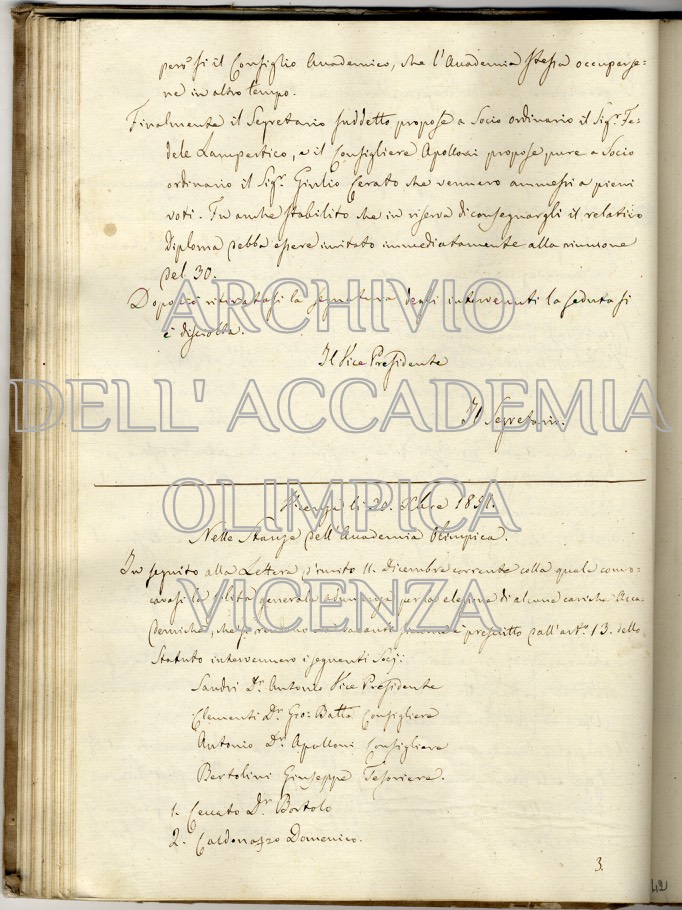 però si il Consiglio Accademico, che l'Accademia stessa occuparse=
ne in altro tempo.
Finalmente il Segretario suddetto propose a Socio ordinario il Sigr. Fe=
dele Lampertico, e il Consigliere Apolloni propose pure a Socio
ordinario il Sigr. Giulio Cerato che vennero ammessi a pieni
voti. Fu anche stabilito che in riserva di consegnargli il relativo
Diploma debba essere invitato immediatamente alla riunione
del 30.
Dopo ciò ritiratasi la segnatura degli intervenuti la seduta si
è disciolta.
Il Vice Presidente
Il Segretario.
ARCHIVIO
DELL' ACCADEMIA
OLIMPICA
VICENZA
Vicenza li 20. Xbre 1851.
Nelle Stanze dell'Accademia Olimpica.
In seguito alla Lettera d'invito 11. Dicembre corrente colla quale convo=
cavasi la solita generale adunanza per la elezione di alcune cariche Acca=
demiche, che si rendono prescritto dall'arto. 13. dello
Statuto intervennero i seguenti Socj:
Sandri Dr. Antonio Vice Presidente
Clementi Dr. Gio: Batta Consigliere
Antonio Dr. Apolloni Consigliere
Bertolini Giuseppe Tesoriere.
1. Ceccato Dr. Bortolo
2. Caldonazzo Domenico.
3.
42